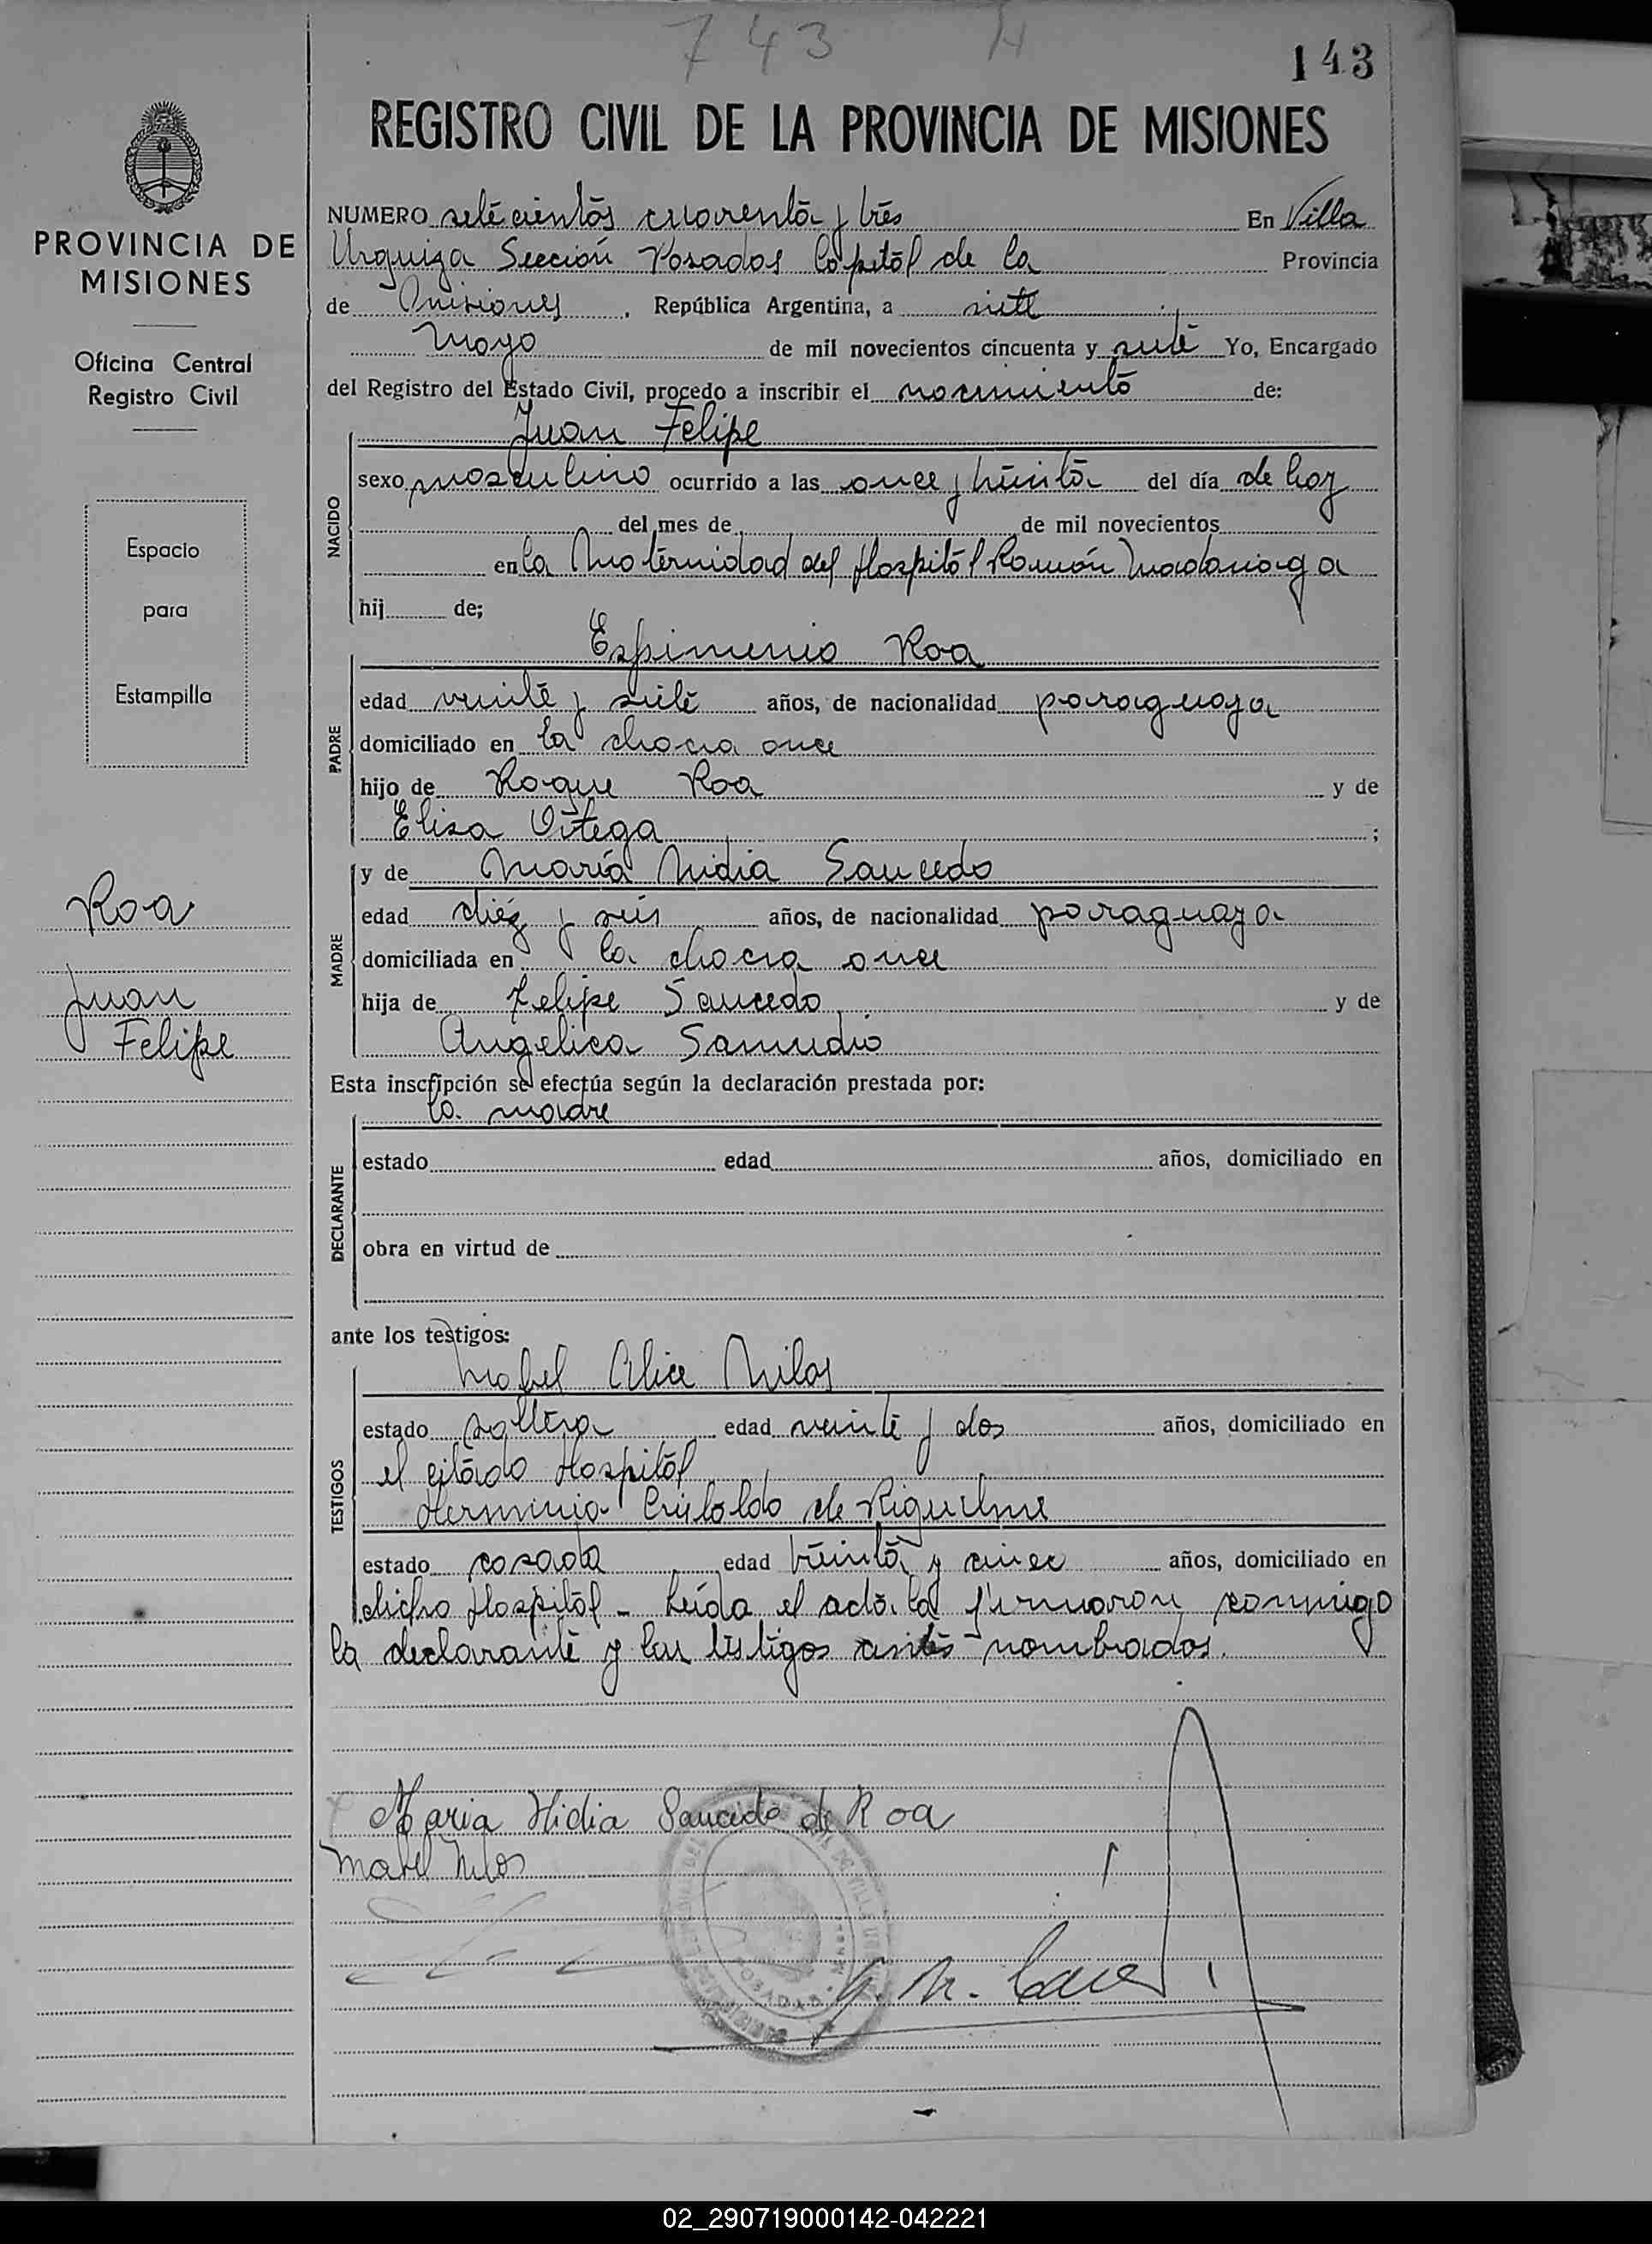 743
143
REGISTRO CIVIL DE LA PROVINCIA DE MISIONES
PROVINCIA DE
MISIONES
Oficina Central
Registro Civil
Espacio
para
Estampilla
Roa
Juan
Felipe
NUMERO setecientos cuarenta y tres En Villa
Urquiza Sección Posadas Capital de la Provincia
de Misiones, República Argentina, a siete
Mayo de mil novecientos cincuenta y siete Yo, Encargado
del Registro del Estado Civil, procedo a inscribir el nacimiento de:
Juan Felipe
NACIDO
sexo masculino ocurrido a las once y treinta del día de hoy
del mes de de mil novecientos
en la Maternidad del Hospital Ramón Madariaga
hij de;
Roa
PADRE
edad veinte y siete años, de nacionalidad paraguaya
domiciliado en la chacra once
hijo de Roque Roa y de
Elisa Ortega ;
y de María Nidia Saucedo
MADRE
edad diez y seis años, de nacionalidad paraguaya
domiciliada en la chacra once
hija de Felipe Saucedo y de
Angelica Samudio
Esta inscripción se efectúa según la declaración prestada por:
la madre
DECLARANTE
estado edad años, domiciliado en
obra en virtud de
ante los testigos:
Mabel Alice Milos
TESTIGOS
estado soltera edad veinte y dos años, domiciliado en
el citado Hospital
Herminia de Riquelme
estado casada edad treinta y cinco años, domiciliado en
dicho Hospital - Leída el acta, la firmaron conmigo
la declarante y los testigos antes nombrados.
Maria Nidia Saucedo de Roa
Mabel Milos
POSADAS
02_290719000142-042221